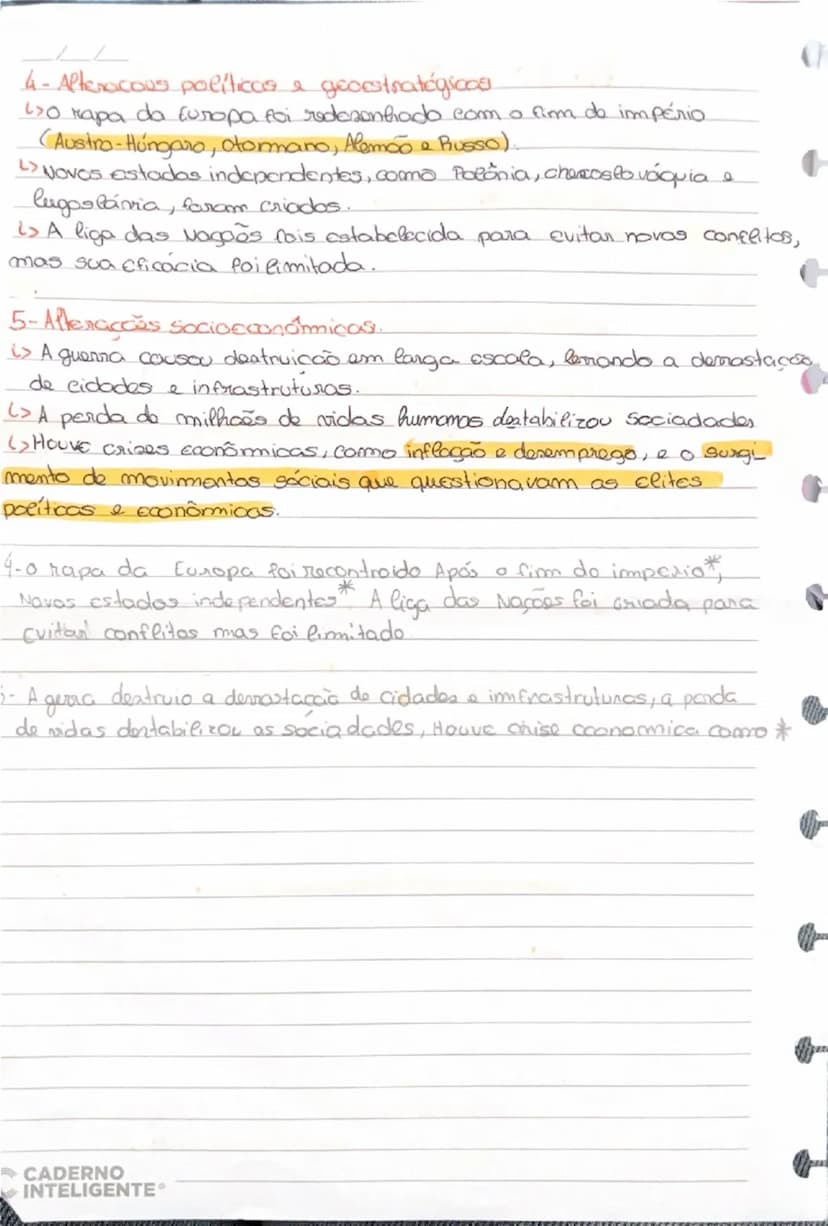 __/__/__
4- Alteracoes políticas e geoestratégicas
↳O mapa da Europa foi redesenhado com o fim do império
(Austro-Húngaro, otormano, Alemão e Russo).
↳Novos estados independentes, como Polônia, checoslováquia e
Iugoslávia, foram criados.
↳ A liga das Nações fois estabelecida para evitar novos conflitos,
mas sua eficácia foi limitada.
5- Alteracções socioeconômicas.
↳ A guerra causou destruição em larga escala, levando a devastação
de cidades e infrastruturas.
↳ A perda de milhões de vidas humanas destabilizou sociadades
↳ Houve crises econômicas, como inflação e desemprego, e o surgi
mento de movimentos sóciais que questionavam as elites
políticas e econômicas.
4-O mapa da Europa foi recontroido Após o fim do imperio*,
Novos estados independentes* A liga das Nações foi criada para
Evitar conflitos mas foi limitado
- A gerra destruio a devastacção de cidades e imfrastruturas, a perda
de vidas destabilizou as sociadades, Houve crise economica como *
CADERNO
INTELIGENTE®